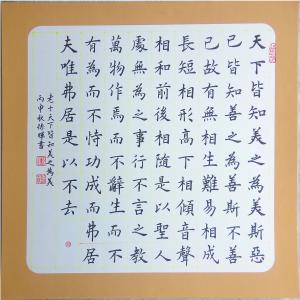 天下皆知美之為美斯惡
已皆知善之為善斯不善
已故有無相生難易相成
長短相形高下相傾音聲
相和前後相隨是以聖人
處無為之事行不言之教
萬物作焉而不辭生而不
有為而不恃功成而弗居
夫唯弗居是以不去
老子天下皆知美之為美
丙申秋德輝書